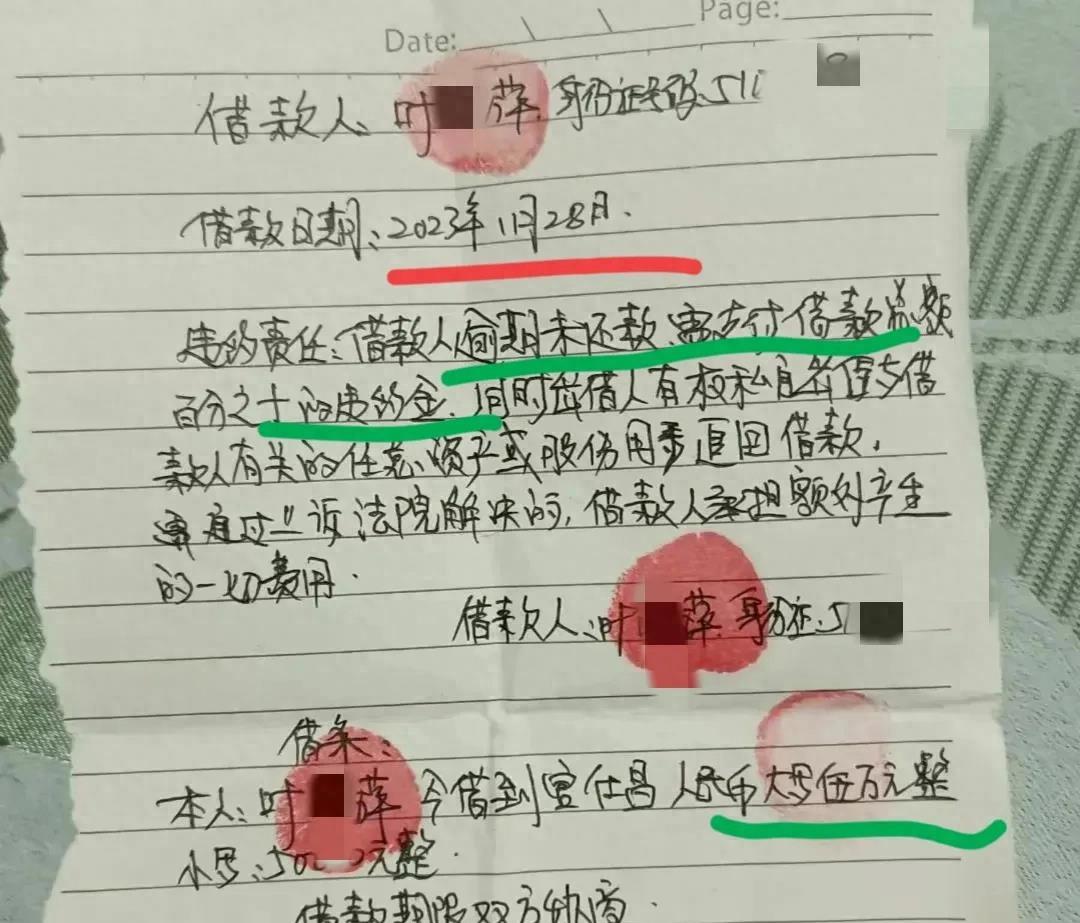 Date: Page:
借款人、叶 萍、身份证号码、511
借款日期、2023年11月28日.
违约责任：借款人逾期未还款、需支付借款总额
百分之十的违约金、同时出借人有权私自处置与借
款人有关的任意、资产或股份用来追回借款,
需通过上诉法院解决的, 借款人承担额外产生
的一切费用.
借款人、叶 萍、身份证、5
借条：
本人：叶 萍 今借到 仕昌 人民币 大写伍万元整
小写、50 元整.
借款期限双方